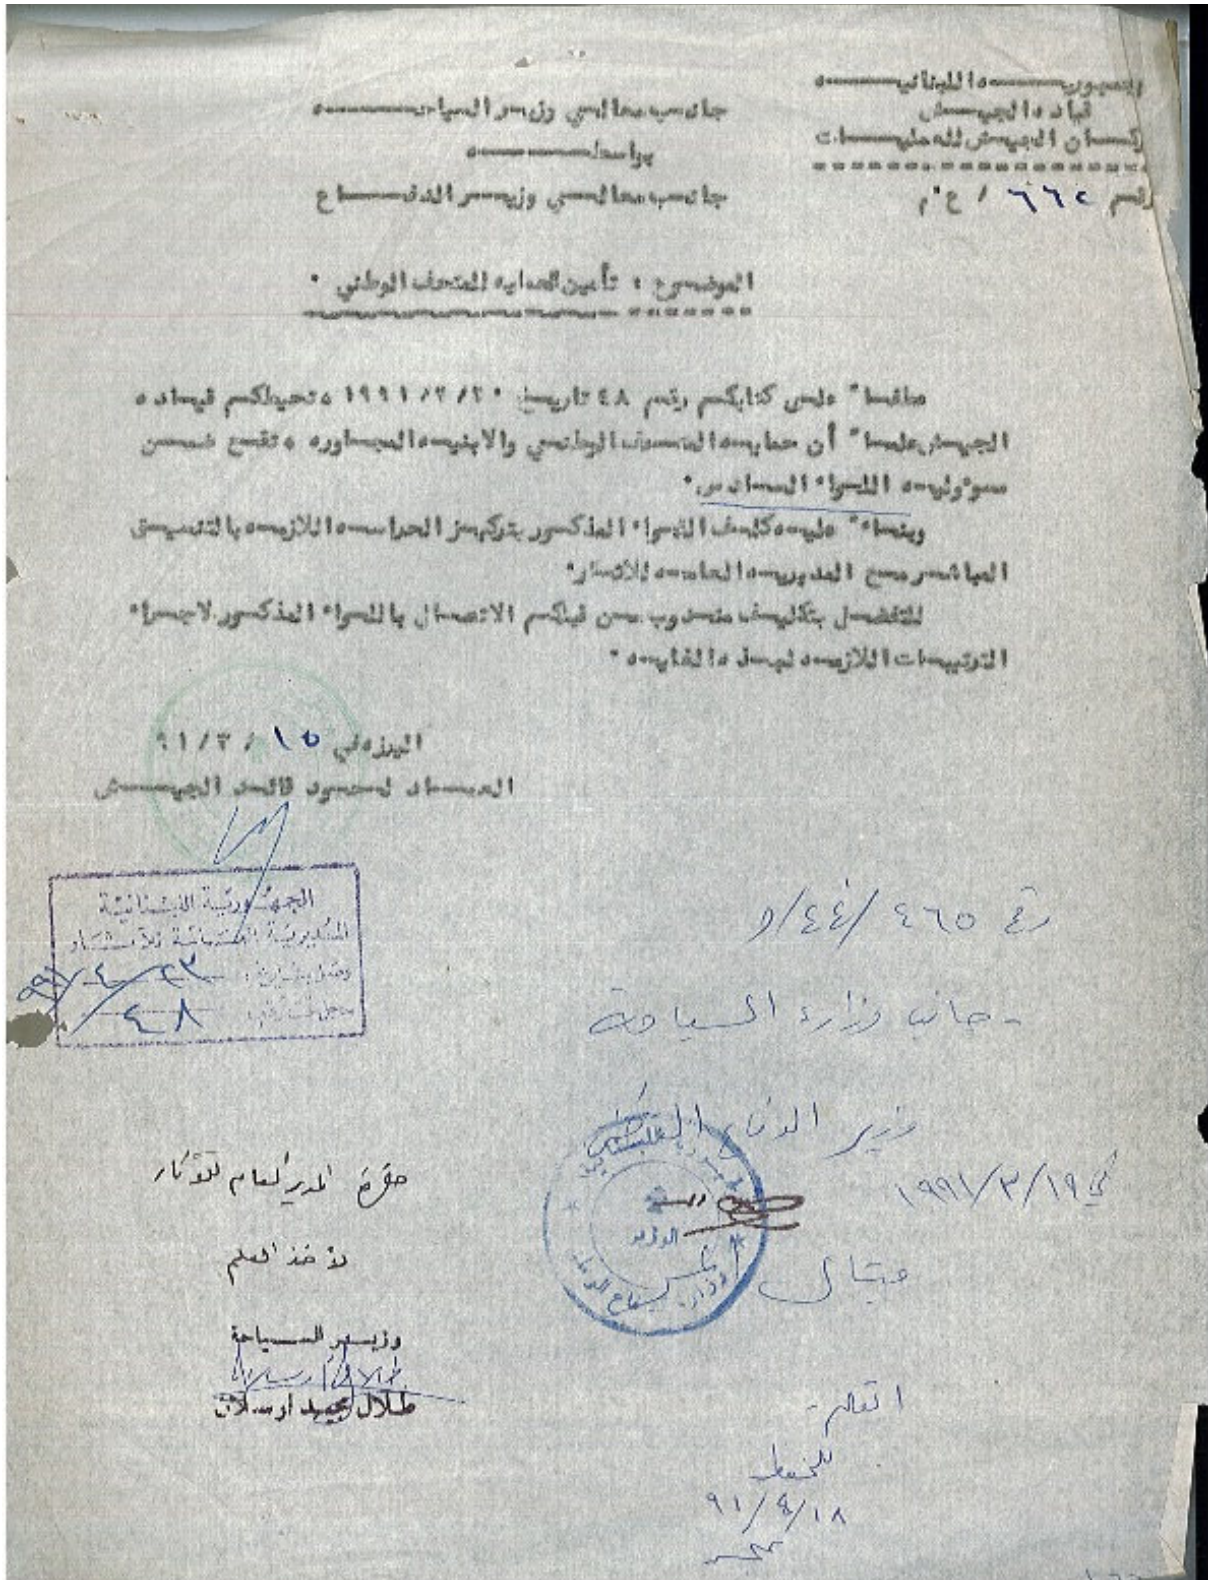 الجمهوريـــة اللبنانيـــة
قيادة الجيـــش
اركـــان الجيـش للعمليـــات
رقم ٦٦٢ / ع م
جانب معالـي وزيـر السياحـــة
بواسطـــة
جانب معالـــي وزيـــر الدفـــاع
الموضـوع : تأمين الحماية للمتحف الوطني ٠
عطفـا" علـى كتابكـم رقـم ٤٨ تاريـخ ٢٠/٢/١٩٩١ ، تحيطكـم قيـادة
الجيـش علمـا" أن حمايـة المتحـف الوطنـي والابنيـة المجاورة ، تقـع ضمـن
مسؤوليـة اللـواء السـادس ٠
وبنـاء" عليـه كلـف اللـواء المذكـور بتركيـز الحراسـة اللازمـة بالتنسيـق
المباشـر مـع المديريـة العامـة للآثـار٠
للتفضـل بتكليـف منـدوب مـن قبلكم الاتصـال باللـواء المذكـور لاجـراء
الترتيبـات اللازمـة لهـذه الغايـة ٠
اليرزة في ١٥ / ٣ / ٩١
العمـــاد لحـود قائـد الجيـــش
الجمهورية اللبنانية
المديرية العامة للآثار
وصل بتاريخ: ٢٣/٤/٩٩١
سجل تحت رقم: ٤٨
رقم ٤٦٥ /٤٤/و
- جانب وزارة السياحة
وزير الدفاع الوطني
في ١٩/٣/١٩٩١
ميشال
حضرة المدير العام للآثار
لأخذ العلم
وزيـر السـياحة
طلال مجيد ارسلان
للحفظ
١٨/٤/٩١